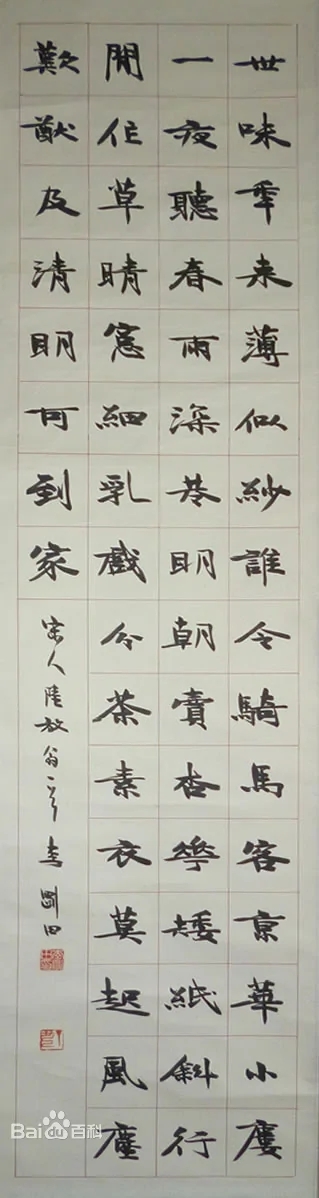 世味年来薄似紗誰令騎馬客京華小廔
一夜聽春雨深巷明朝賣杏華矮紙斜行
閒作草晴窻細乳戲分茶素衣莫起風塵
歎猷及清明可到家
宋人陸放翁一首李剛田
Bai百科